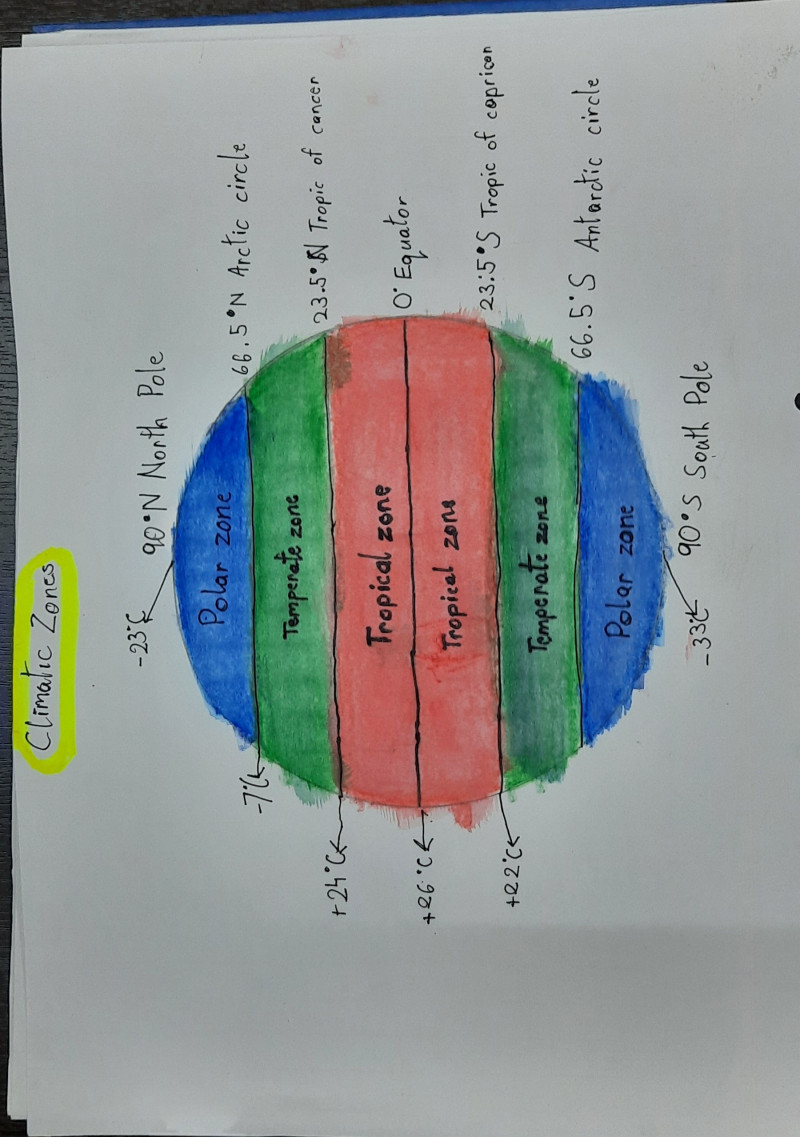 Climatic Zones
-23°C
90°N North Pole
Polar zone
-7°C
66.5°N Arctic circle
Temperate zone
+24°C
23.5°N Tropic of cancer
Tropical zone
+26°C
0° Equator
Tropical zone
+22°C
23.5°S Tropic of capricon
Temperate zone
66.5°S Antarctic circle
Polar zone
-33°C
90°S South Pole